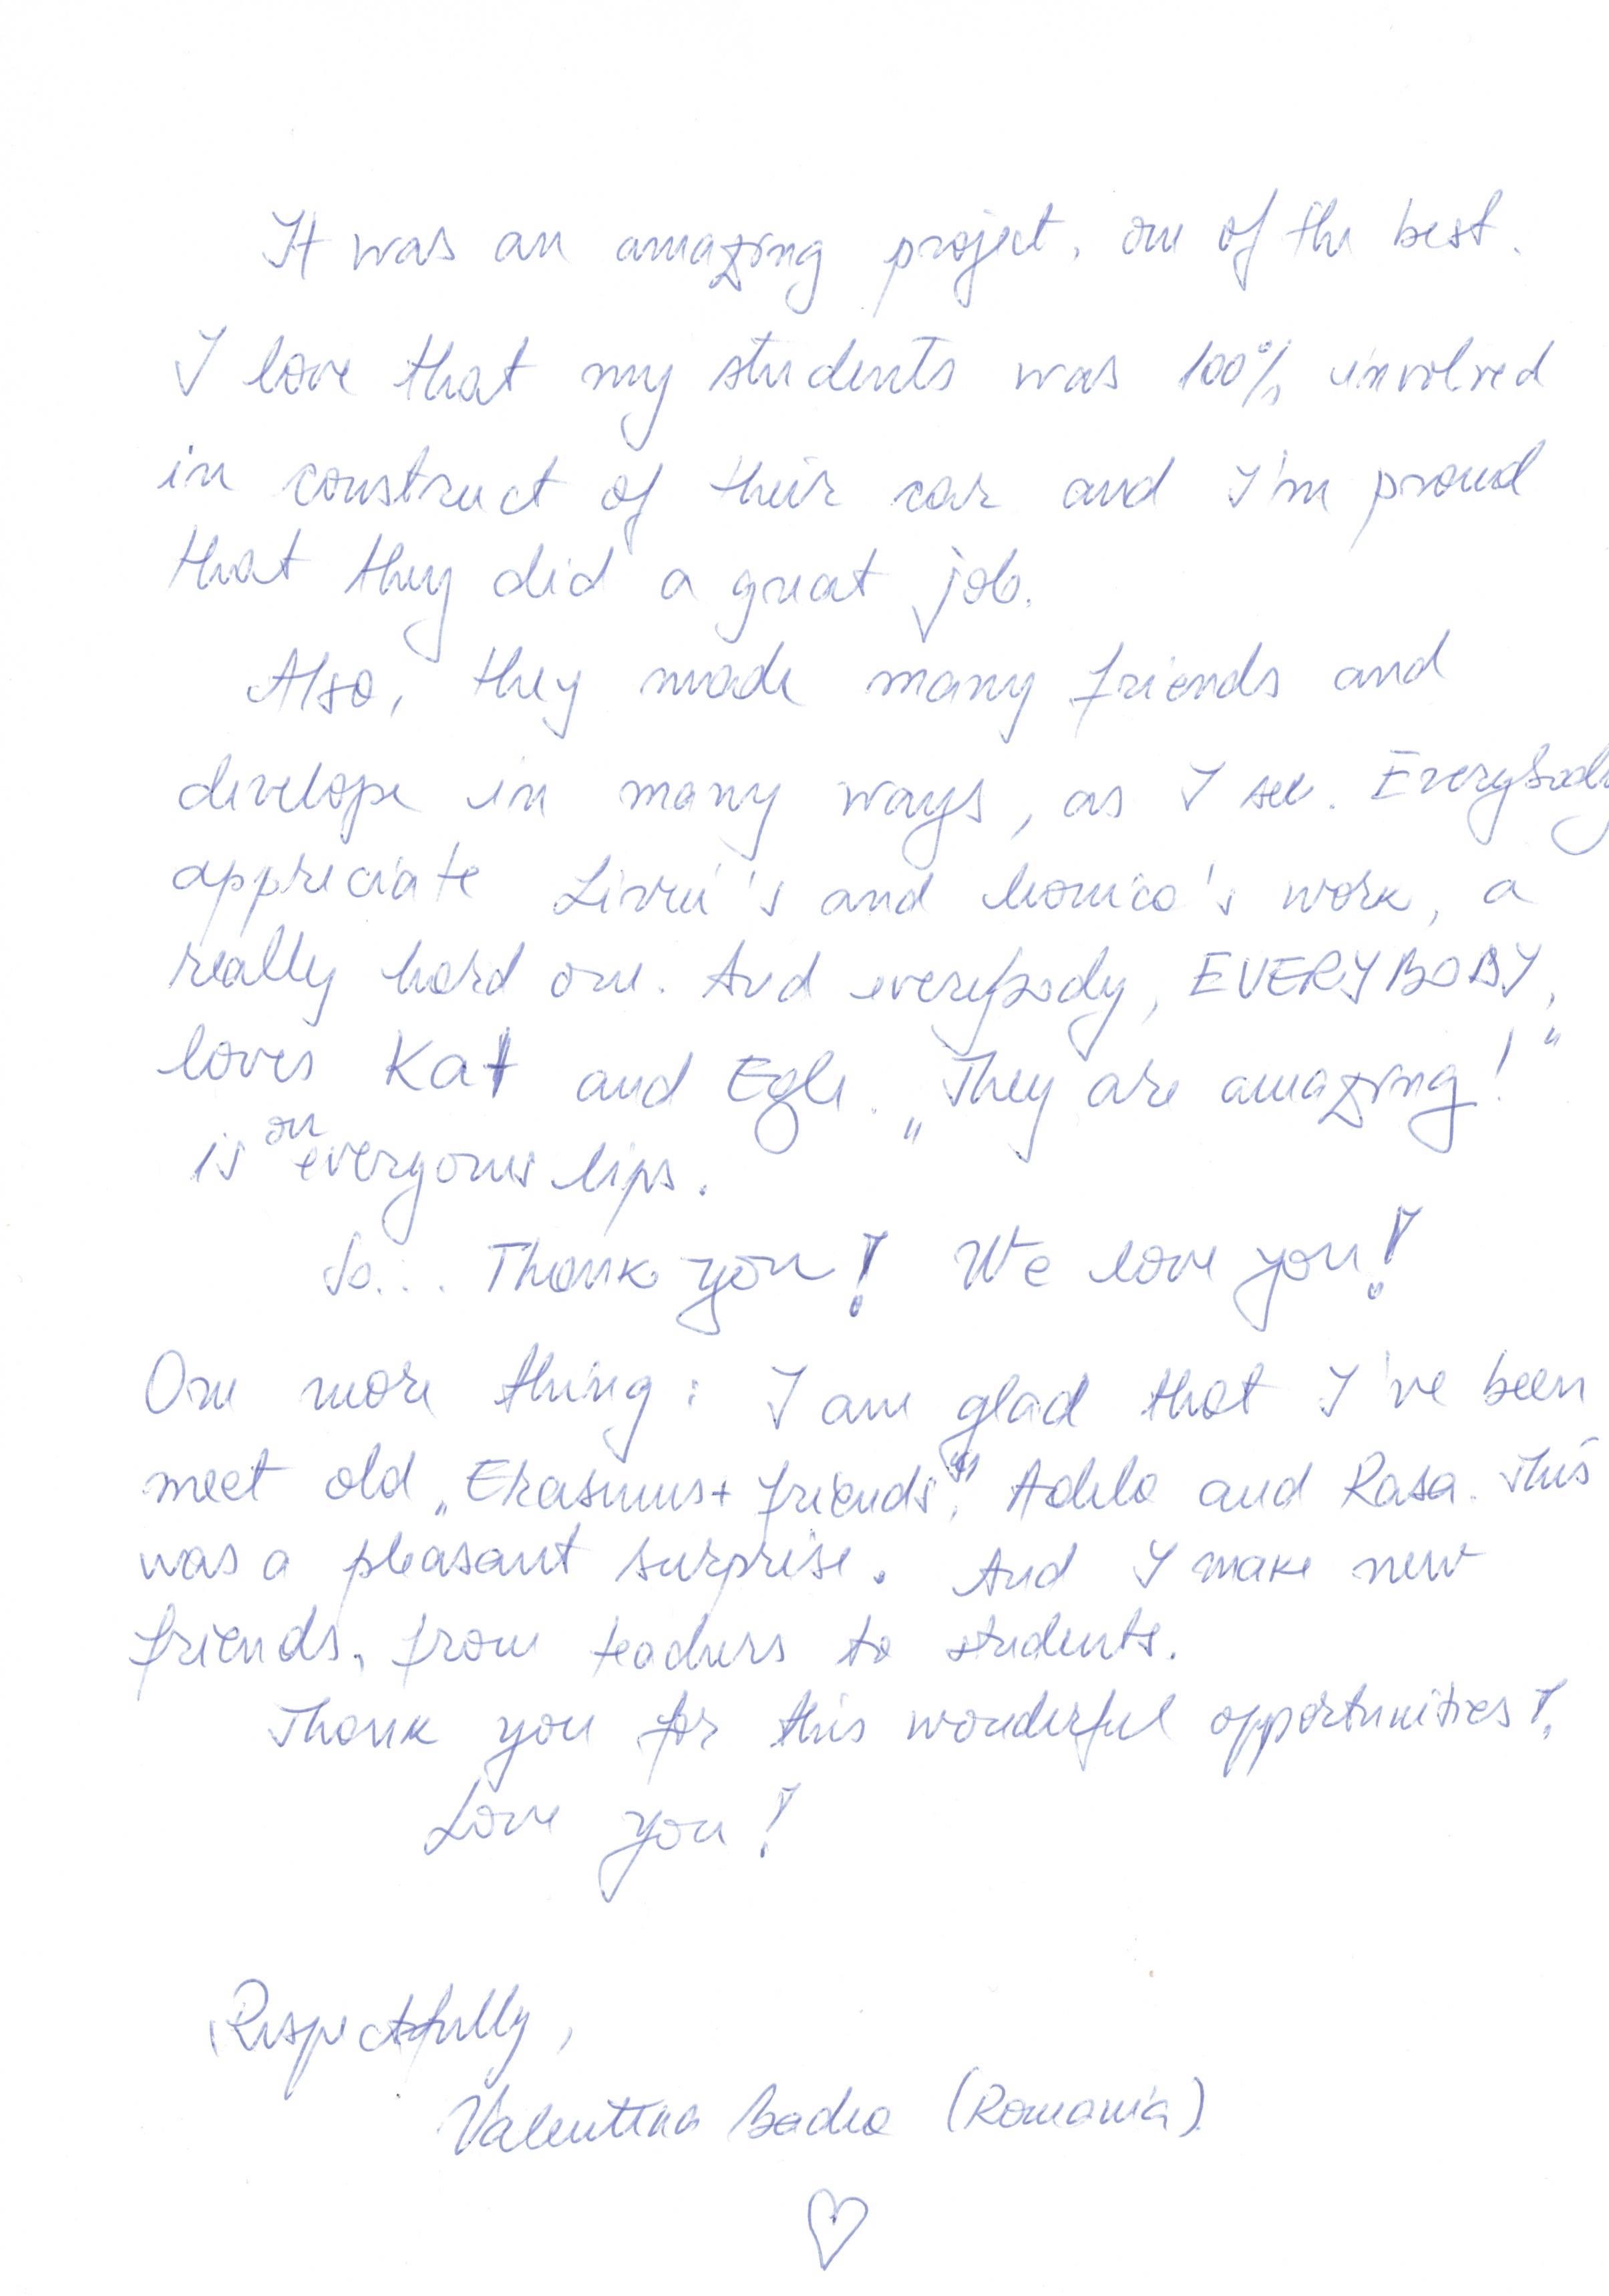 It was an amazing project, one of the best.
I love that my students was 100% involved
in construct of their car and I'm proud
that they did a great job.
Also, they made many friends and
develope in many ways, as I see. Everybody
appreciate Liviu's and Monica's work, a
really hard one. And everybody, EVERYBODY,
loves Kat and Egle. „They are amazing!"
is on everyone's lips.
So... Thank you! We love you!
One more thing: I am glad that I've been
meet old „Erasmus+ friends", Adela and Rasa. This
was a pleasant surprise. And I make new
friends, from teachers to students.
Thank you for this wonderful opportunities!
Love you!
Respectfully,
Valentina Badea (Romania)